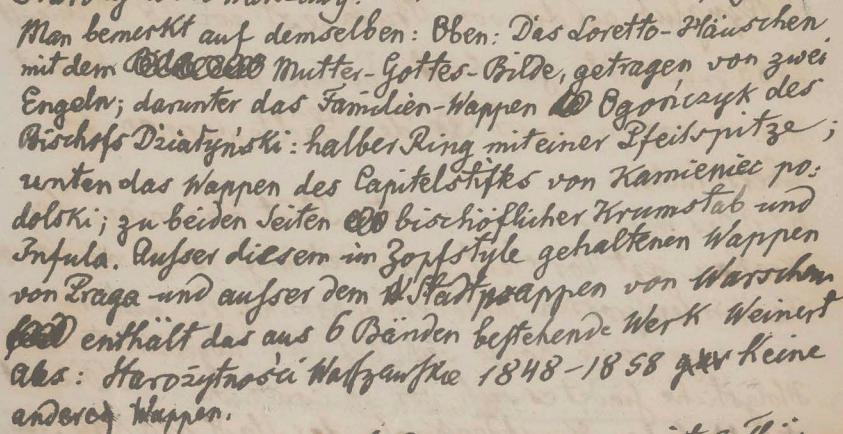 Man bemerkt auf demselben: Oben: Das Loretto-Häuschen
mit dem Mutter-Gottes-Bilde, getragen von zwei
Engeln; darunter das Familien-Wappen Ogończyk des
Bischofs Działyński: halber Ring mit einer Pfeilspitze;
unten das Wappen des Capitelstifts von Kamieniec po:
dolski; zu beiden Seiten bischöflicher Krumstab und
Infula. Ausser diesem im Zopfstyle gehaltenen Wappen
von Praga und ausser dem Stadtwappen von Warschau
enthält das aus 6 Bänden bestehende Werk Weinert
Alex: Starożytności Warszawskie 1848-1858 keine
anderen Wappen.